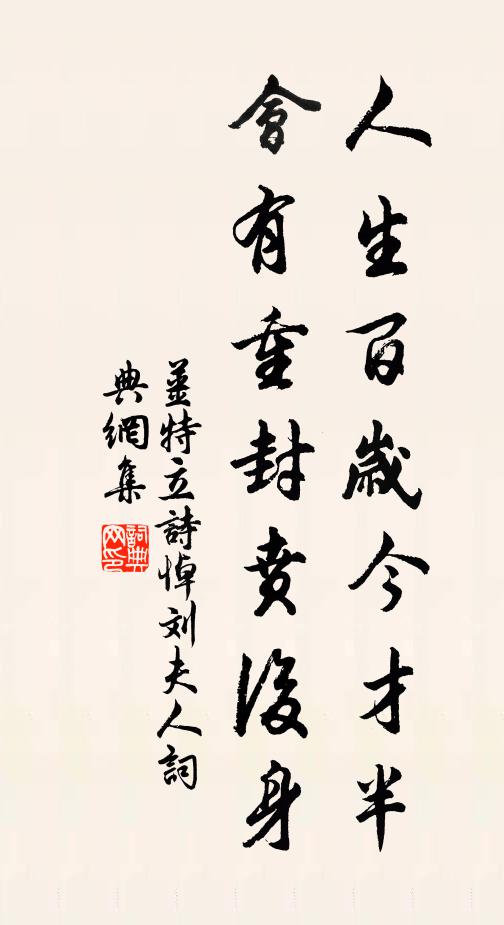 人生百歲今才半
會有重封賁後身
薑特立詩悼刘夫人詞
典網集
詞典网印